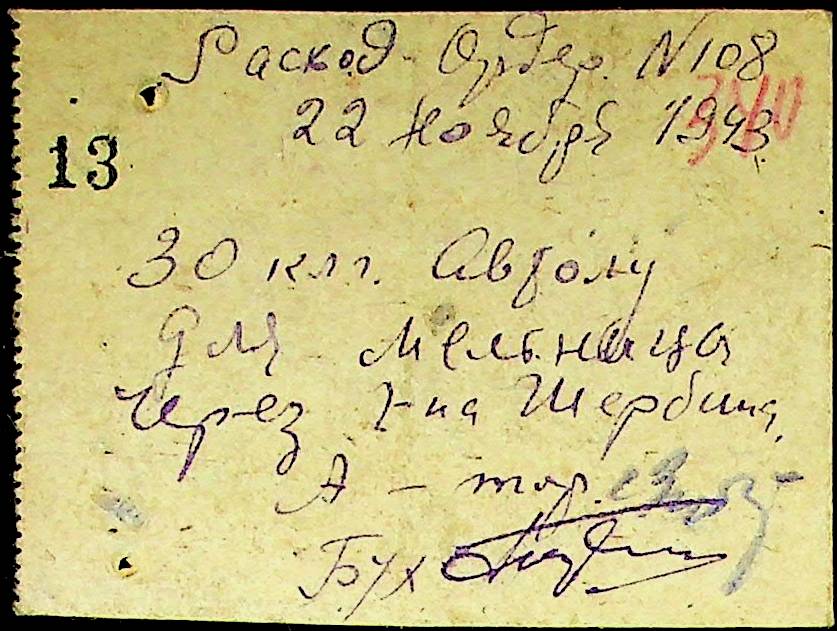 Расход-Ордер. N108
22 Ноября 1943
13
30 клг. Автолу
для мельница
через т-на Шербина,
А - тор.
Бух